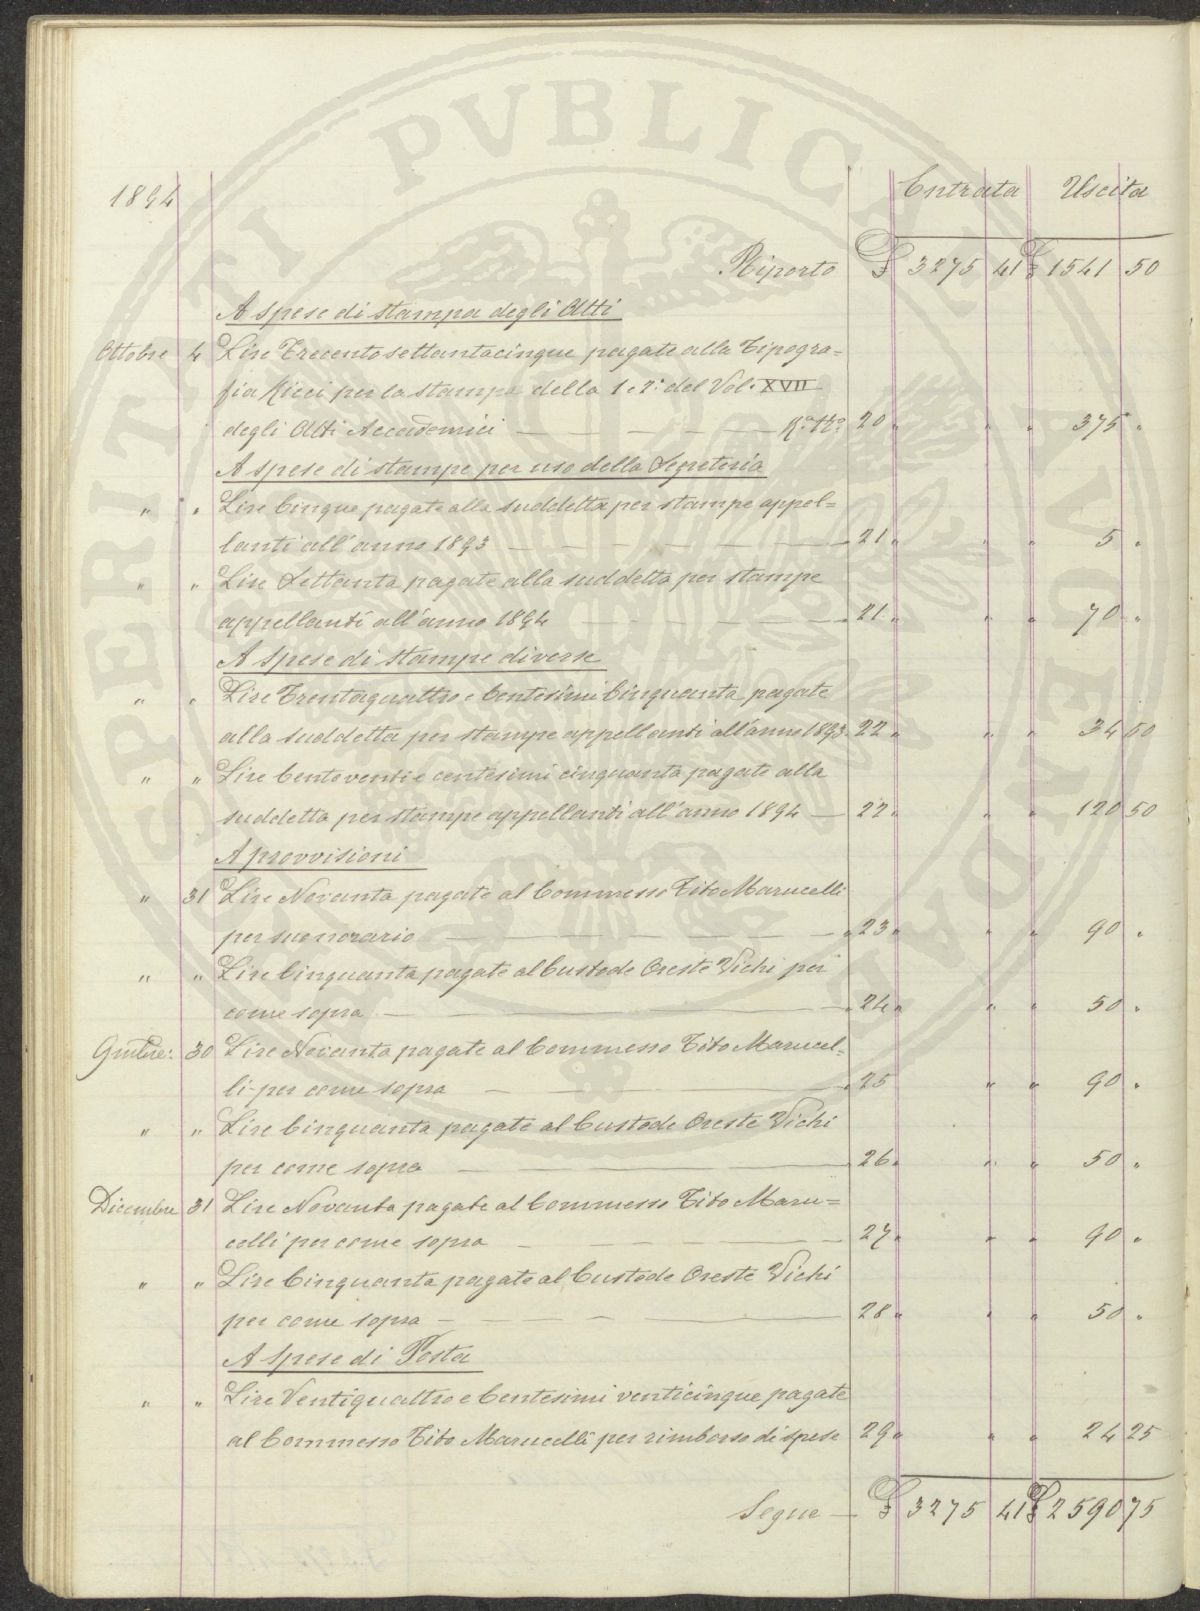 PVBLICAE
1894 Entrata Uscita
Riporto £ 3275 41 £ 1541 50
A spese di stampa degli Atti
Ottobre 4 Lire Trecentosettantacinque pagate alla Tipogra=
fia Ricci per la stampa della 1 e 2ª del Vol. XVII
degli Atti Accademici 20 " " " 375 "
A spese di stampe per uso della Segreteria
" " Lire Cinque pagate alla suddetta per stampe appel=
lanti all'anno 1893 " 21 " " " 5 "
" " Lire Settanta pagate alla suddetta per stampe
appellanti all'anno 1894 " 21 " " " 70 "
A spese di stampe diverse
" " Lire Trentaquattro e Centesimi Cinquanta pagate
alla suddetta per stampe appellanti all'anno 1893 22 " " " 34 50
" " Lire Centoventi e centesimi cinquanta pagate alla
suddetta per stampe appellanti all'anno 1894 22 " " " 120 50
A provvisioni
" 31 Lire Novanta pagate al Commesso Tito Marucelli
per suo onorario " 23 " " " 90 "
" " Lire Cinquanta pagate al Custode Oreste Vichi per
come sopra " 24 " " " 50 "
30 Lire Novanta pagate al Commesso Tito Marucel=
li per come sopra " 25 " " 90 "
" " Lire Cinquanta pagate al Custode Oreste Vichi
per come sopra " 26 " " " 50 "
Dicembre 31 Lire Novanta pagate al Commesso Tito Maru=
celli per come sopra " 27 " " " 90 "
" " Lire Cinquanta pagate al Custode Oreste Vichi
per come sopra 28 " " " 50 "
A spese di Posta
" " Lire Ventiquattro e Centesimi venticinque pagate
al Commesso Tito Marucelli per rimborso di spese 29 " " " 24 25
Segue £ 3275 41 £ 2590 75